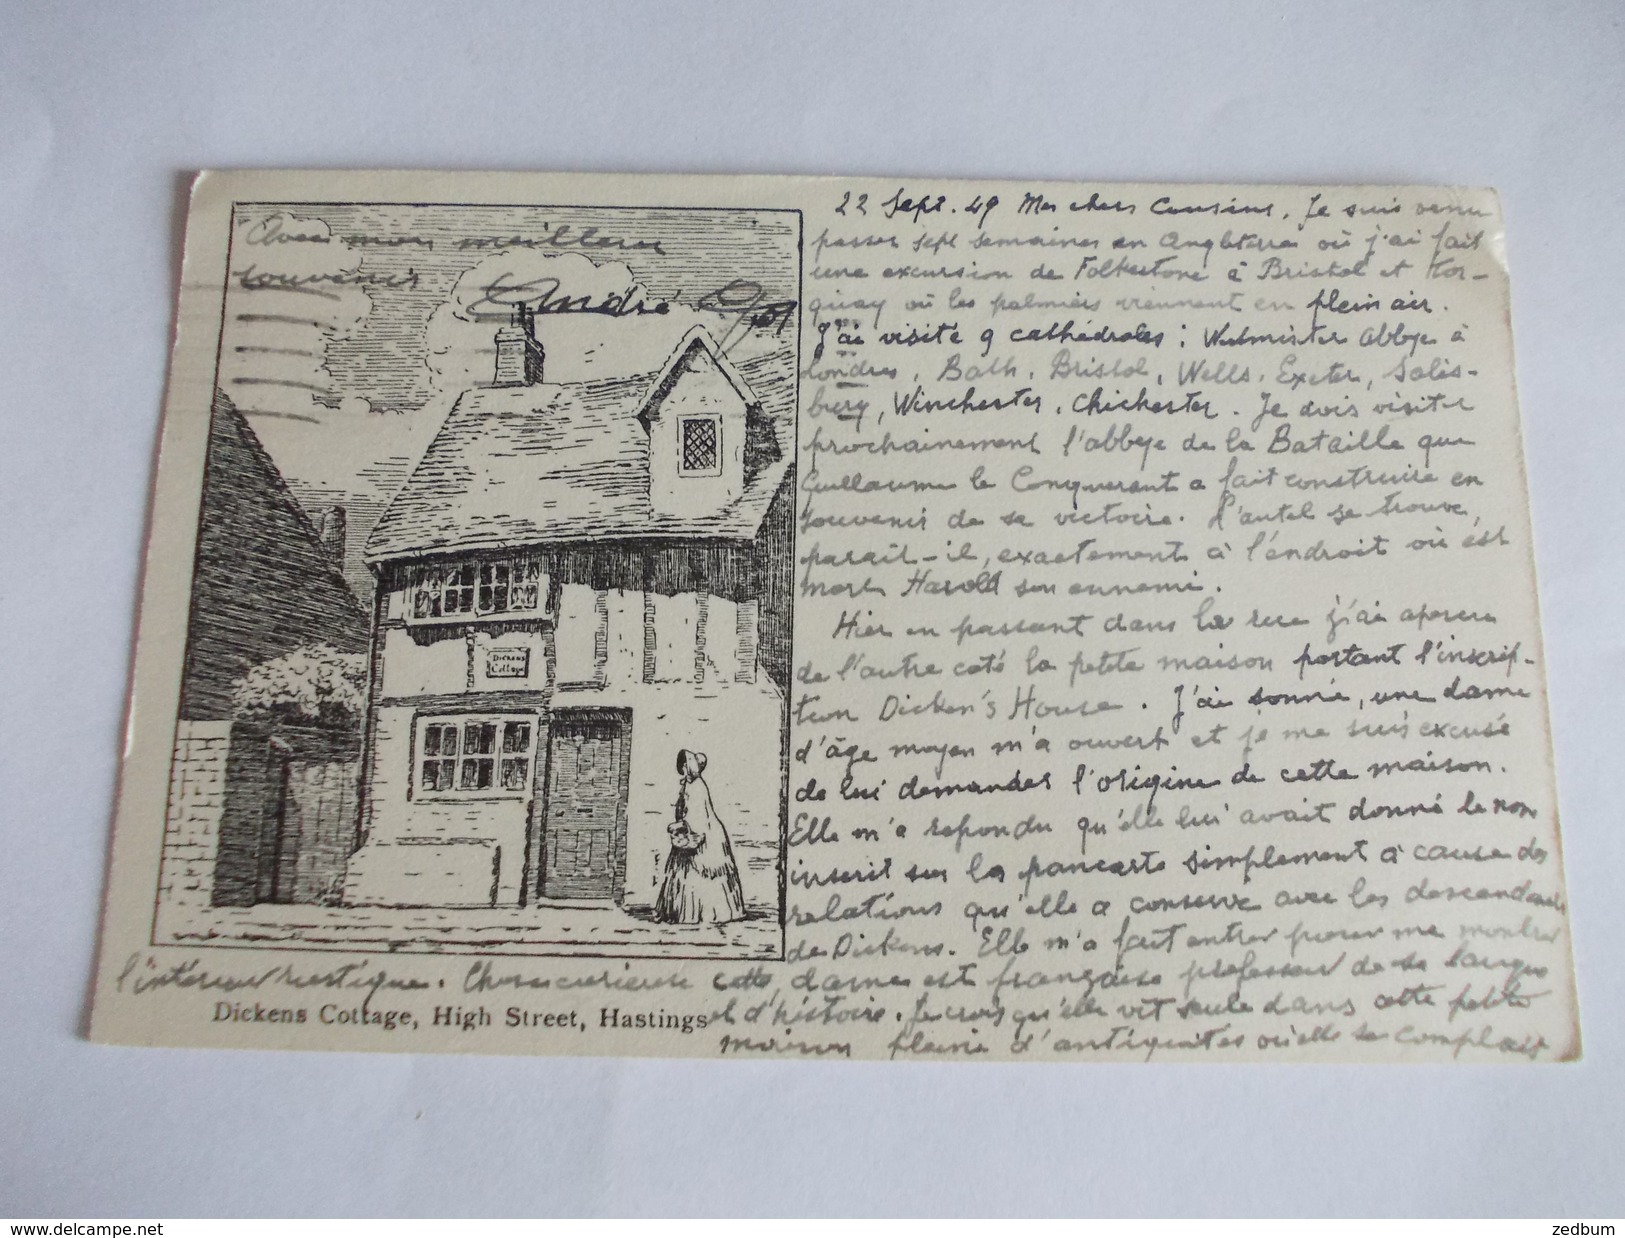 Avec mon meilleur
souvenir
André
22 Sept. 49 Mes chers Cousins. Je suis venu
passer sept semaines en Angleterre où j'ai fait
une excursion de Folkestone à Bristol et Tor-
quay où les palmiers viennent en plein air.
J'ai visité 9 cathédrales : Westminster Abbye à
Londres, Bath, Bristol, Wells, Exeter, Salis-
bury, Winchester, Chichester. Je dois visiter
prochainement l'abbaye de la Bataille que
Guillaume le Conquerant a fait construire en
souvenir de sa victoire. L'autel se trouve,
parait-il, exactement à l'endroit où est
mort Harold son ennemi.
Hier en passant dans la rue j'ai aperçu
de l'autre coté la petite maison portant l'inscrip-
tion Dicken's House. J'ai sonné, une dame
d'âge moyen m'a ouvert et je me suis excusé
de lui demander l'origine de cette maison.
Elle m'a repondu qu'elle lui avait donné le nom
inscrit sur la pancarte simplement à cause des
relations qu'elle a conservé avec les descendants
de Dickens. Elle m'a fait entrer pour me montrer
l'intérieur rustique. Chose curieuse cette dame est française professeur de sa langue
et d'histoire. Je crois qu'elle vit seule dans cette petite
maison pleine d'antiquités où elle se complait
Dickens
Cottage
Dickens Cottage, High Street, Hastings
delcampe.net
zedbum